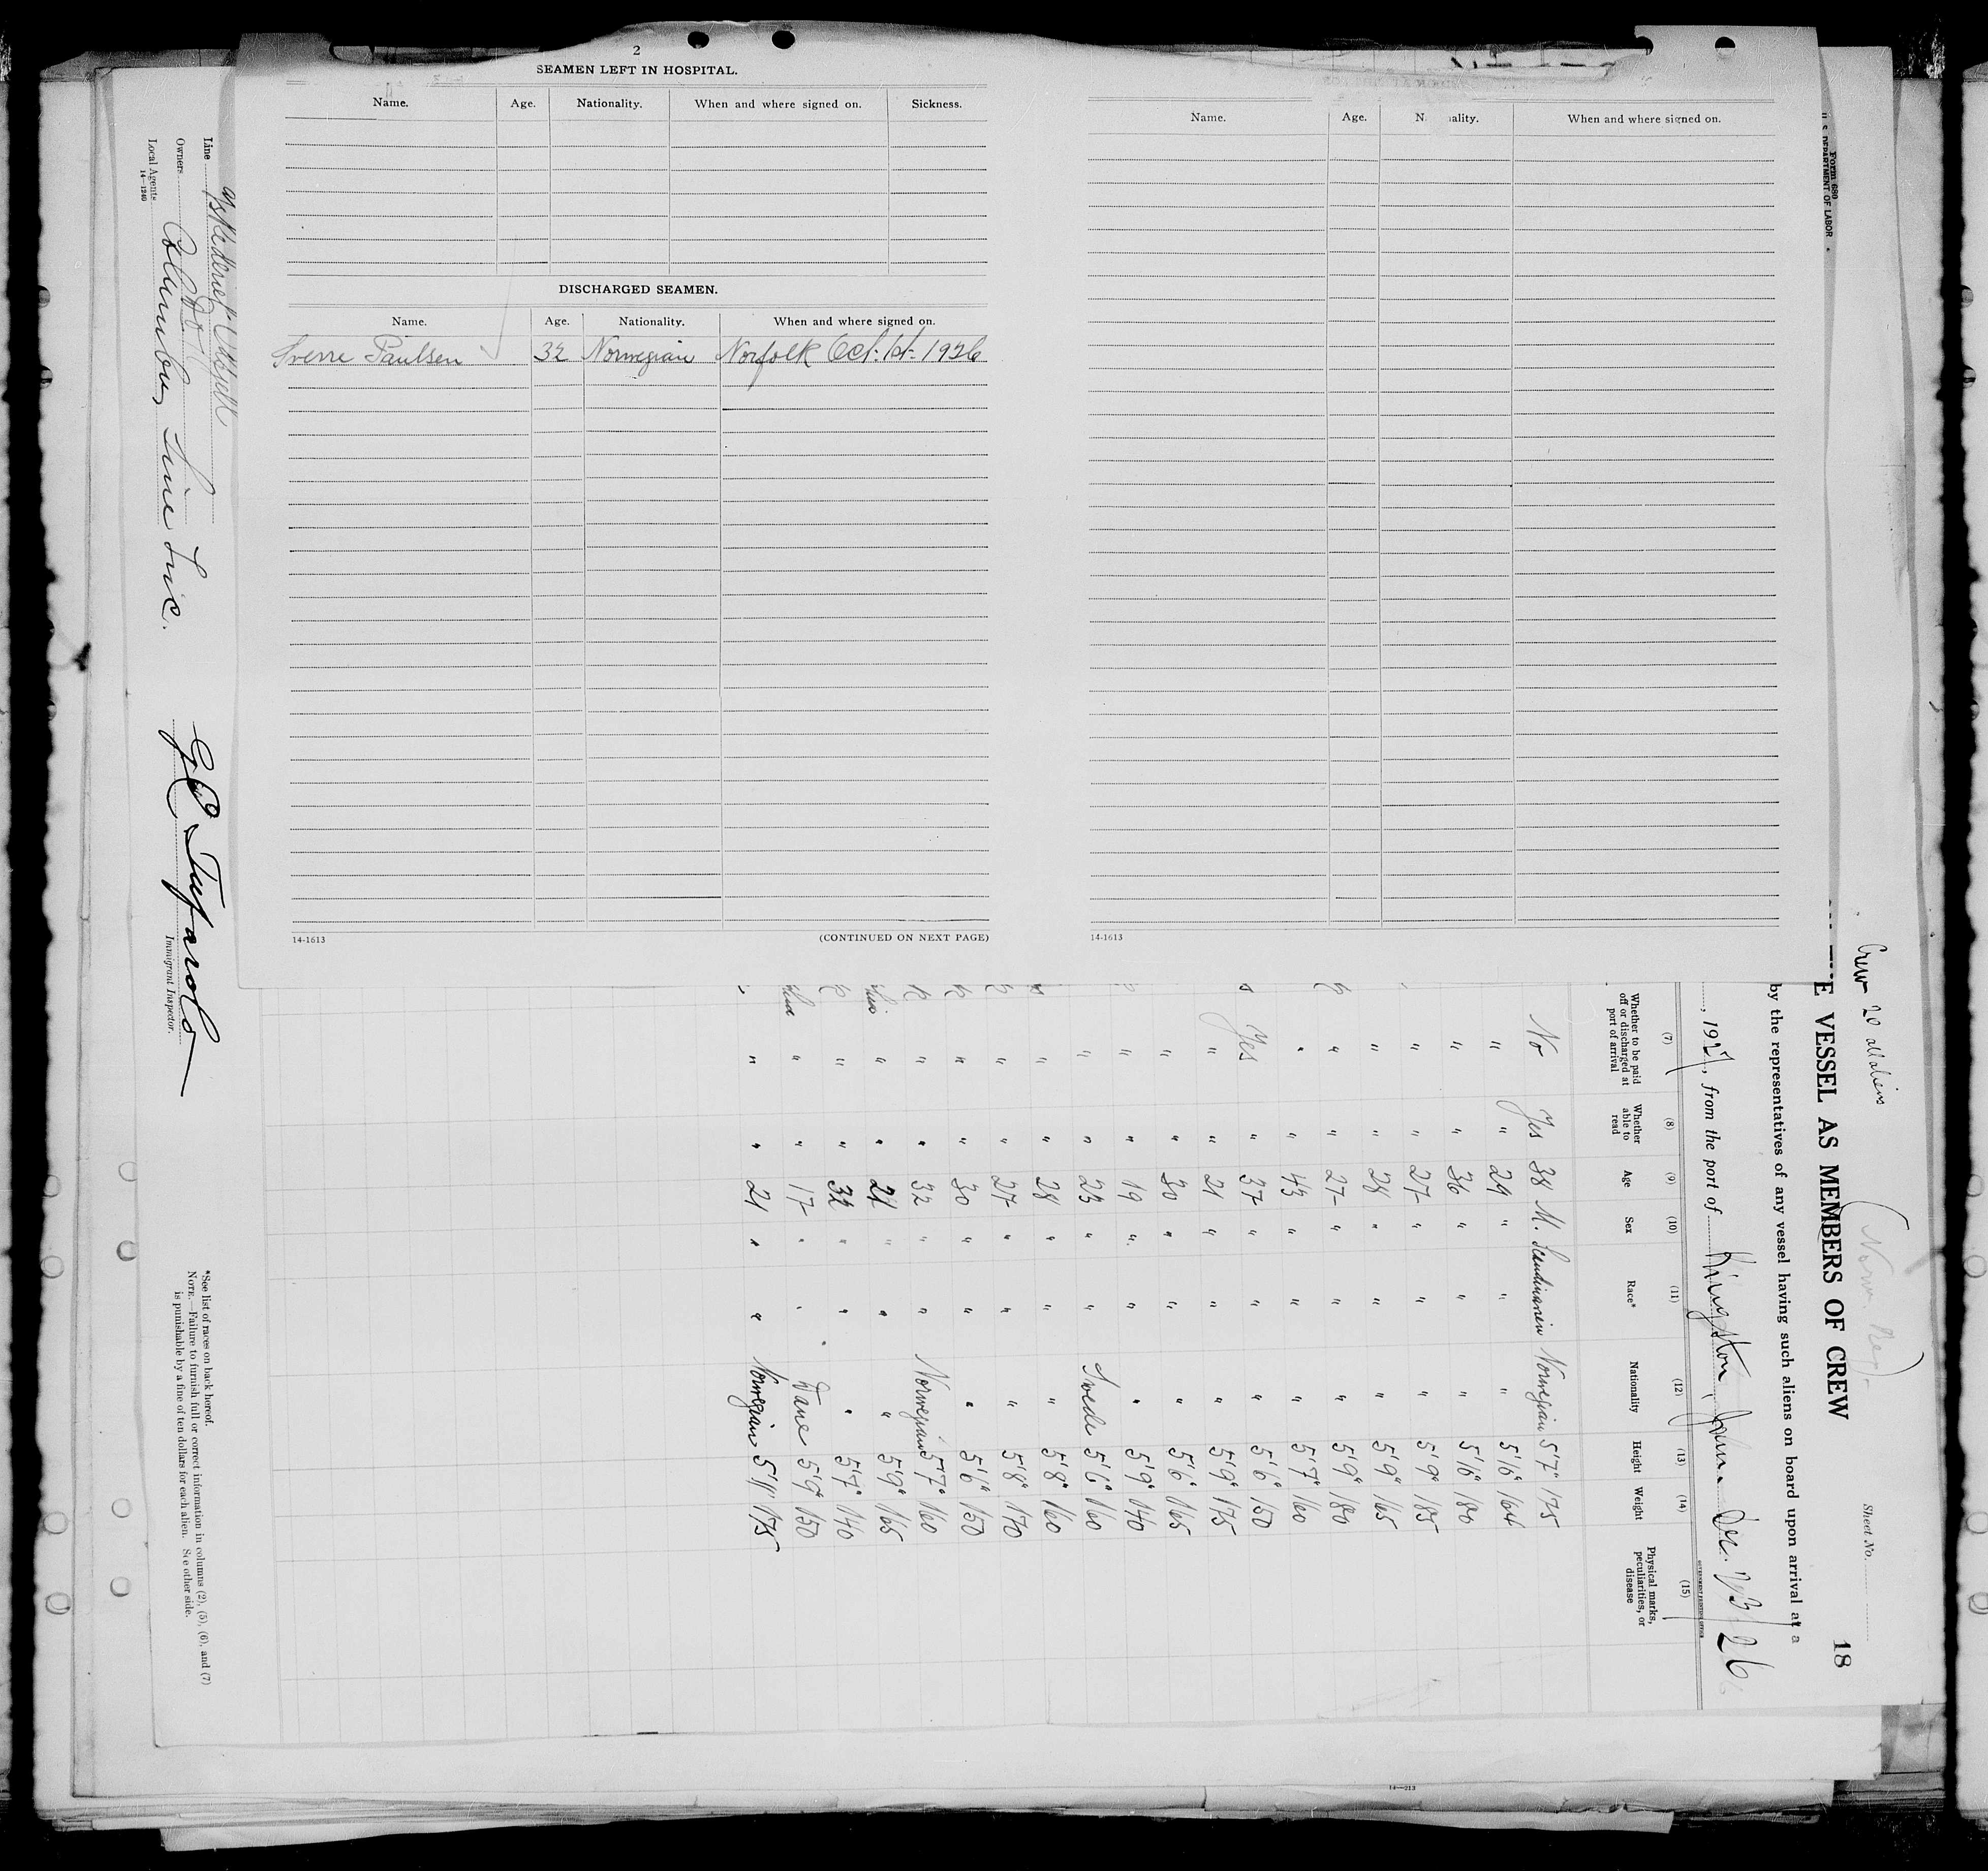 2
SEAMEN LEFT IN HOSPITAL.
Name. Age. Nationality. When and where signed on. Sickness.
DISCHARGED SEAMEN.
Name. Age. Nationality. When and where signed on.
Sverre Paulsen 32 Norwegian Norfolk Oct. 1st. 1926
14-1613 (CONTINUED ON NEXT PAGE)
Name. Age. N ality. When and where signed on.
14-1613
Form 680
U. S. DEPARTMENT OF LABOR
Crew 20 all aliens
(Norw. Reg)
Sheet No.
18
E VESSEL AS MEMBERS OF CREW
by the representatives of any vessel having such aliens on board upon arrival at a
, 1927, from the port of Kingston, Jam. Dec. 26
GOVERNMENT PRINTING OFFICE
(7) (8) (9) (10) (11) (12) (13) (14) (15)
Whether to be paid off or discharged at port of arrival Whether able to read Age Sex Race* Nationality Height Weight Physical marks, peculiarities, or disease
No Yes 38 M. Scandinavien Norwegian 5'7" 175
" " 29 " " " 5'6" 164
" " 36 " " " 5'6" 180
" " 27 " " " 5'9" 185
" " 28 " " " 5'9" 165
" " 27 " " " 5'9" 180
" " 43 " " " 5'7" 160
Yes " 37 " " " 5'6" 150
" " 21 " " " 5'9" 175
" " 30 " " " 5'6" 165
" " 19 " " " 5'9" 140
" " 23 " " Swede 5'6" 160
" " 28 " " " 5'8" 160
" " 27 " " " 5'8" 170
" " 30 " " " 5'6" 150
" " 32 " " Norwegian 5'7" 160
" " 21 " " " 5'9" 165
" " 32 " " " 5'7" 140
" " 17 " " Dane 5'9" 150
" " 21 " " Norwegian 5'11" 175
Line
Owners Do
Local Agents Columbus Line Inc.
14-1240
Immigrant Inspector.
*See list of races on back hereof.
NOTE.—Failure to furnish full or correct information in columns (2), (5), (6), and (7)
is punishable by a fine of ten dollars for each alien. See other side.
14-213